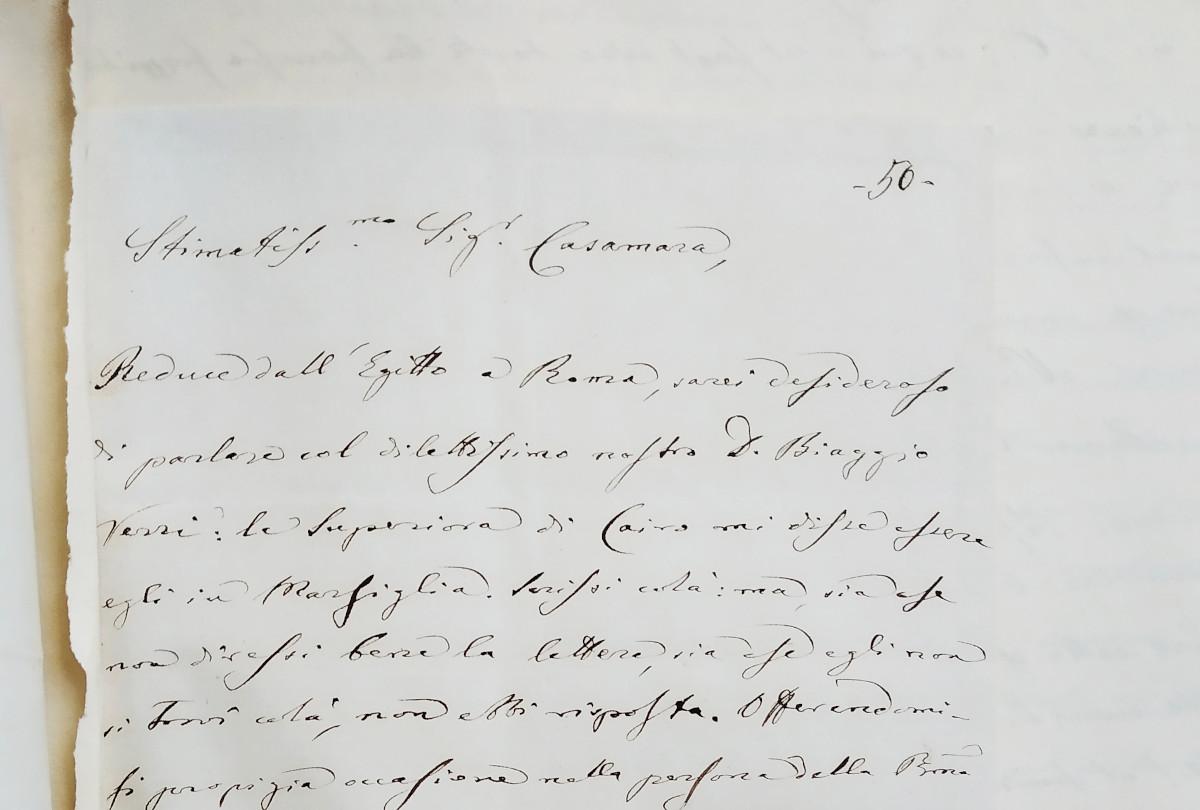 -50-
Stimatiss.mo Sigr. Casamara,
Reduce dall'Egitto a Roma, sarei desideroso
di parlare col dilettissimo nostro D. Biaggio
Verri: la Superiora di Cairo mi disse essere
egli in Marsiglia. Scrissi colà: ma, sia che
non diressi bene la lettera, sia che egli non
si trovi colà, non ebbi risposta. Offerendomi-
si propizia occasione nella persona della